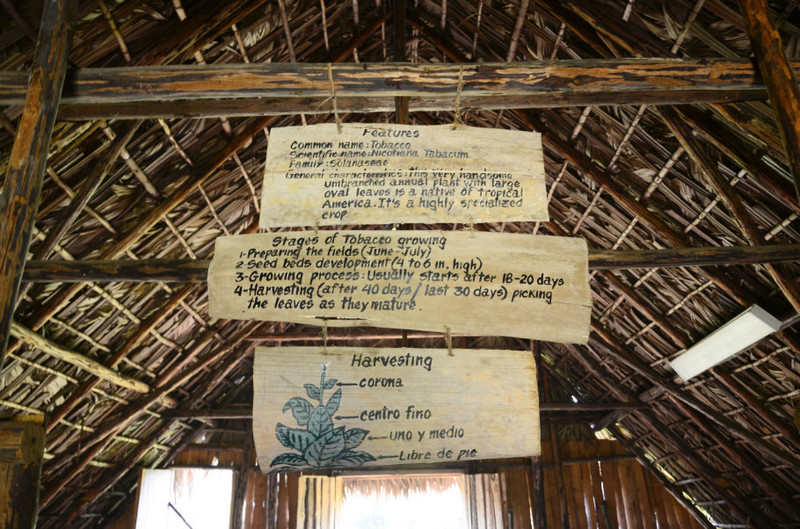 Features
Common name: Tobacco
Scientific name: Nicotiana Tabacum
Family: Solanaseae
General characteristics: This very handsome
umbranched annual plant with large
oval leaves is a native of tropical
America. It's a highly specialized
crop
Stages of Tobacco growing
1-Preparing the fields (June-July)
2-Seed beds development (4 to 6 in. high)
3-Growing process: Usually starts after 18-20 days
4-Harvesting (after 40 days/last 30 days) picking
the leaves as they mature.
Harvesting
corona
centro fino
uno y medio
Libre de pie